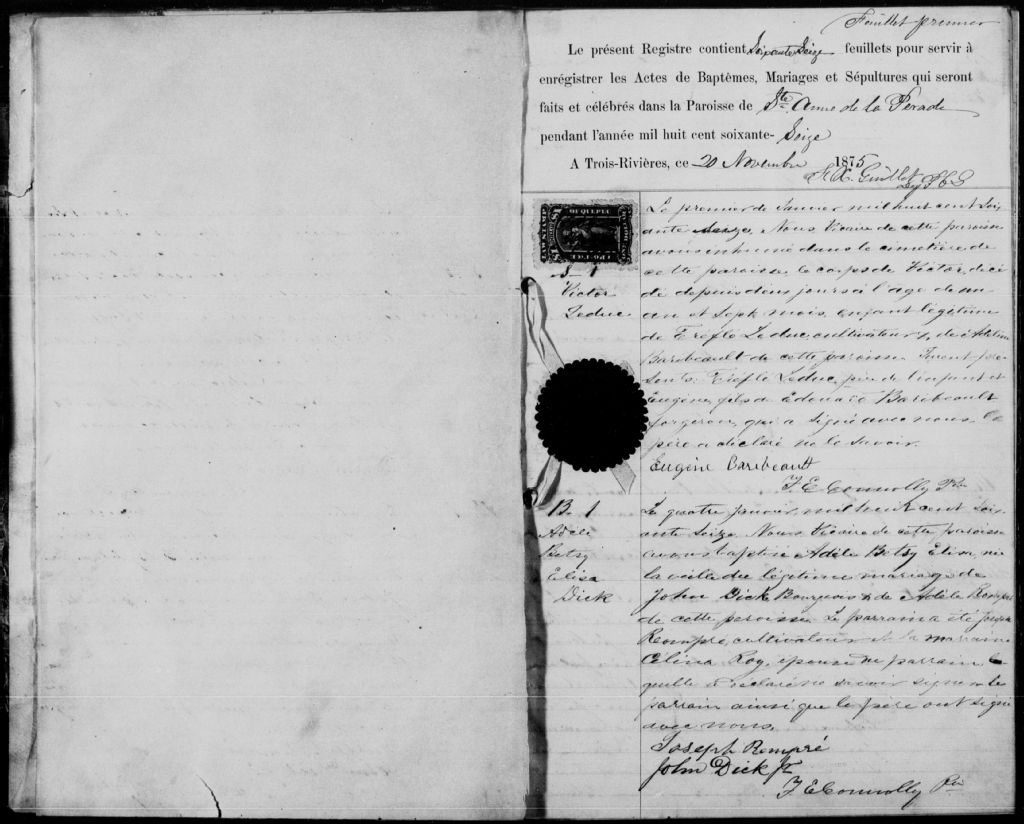 Feuillet premier
Le présent Registre contient Soixante Seize feuillets pour servir à
enrégistrer les Actes de Baptêmes, Mariages et Sépultures qui seront
faits et célébrés dans la Paroisse de Ste. Anne de la Perade
pendant l'année mil huit cent soixante- Seize
A Trois-Rivières, ce 20 Novembre 1875
F. X. Guillet
Dep P C S
LAW STAMP
OF QUEBEC
S - 1
Victor
Leduc
Le premier de Janvier mil huit cent Soix
ante Seize, Nous Vicaire de cette paroisse
avons inhumé dans le cimetière de
cette paroisse le corps de Victor, décé
dé depuis deux jours à l'age de un
an et Sept mois, enfant légitime
de Tréflé Leduc, cultivateur, & de Adeline
Baribeault de cette paroisse. Furent pré
sents Tréflé Leduc, père de l'enfant et
Eugène, fils de Edouard Baribeault
forgeron, qui a signé avec nous, le
père a déclaré ne le savoir.
Eugène Baribeault
F. E. Connolly Ptre
B. 1
Adèle
Betsy
Elisa
Dick
Le quatre janvier, mil huit cent soix
ante Seize, Nous Vicaire de cette paroisse
avons baptisé Adèle Betsy Elisa, née
la veille du légitime mariage de
John Dick Bourgeois & de Adèle Rompré
de cette paroisse. Le parrain a été Joseph
Rompré, cultivateur et la marraine
Célina Roy, épouse du parrain la
quelle a déclaré ne savoir signer le
parrain ainsi que le père ont signé
avec nous.
Joseph Rompré
John Dick Jr
F. E. Connolly Ptre